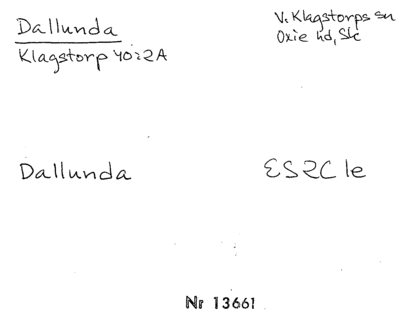 Dallunda
V. Klagstorps sn
Klagstorp 40:2A
Oxie hd, Sk
Dallunda
ES2C 1e
Nr 13661